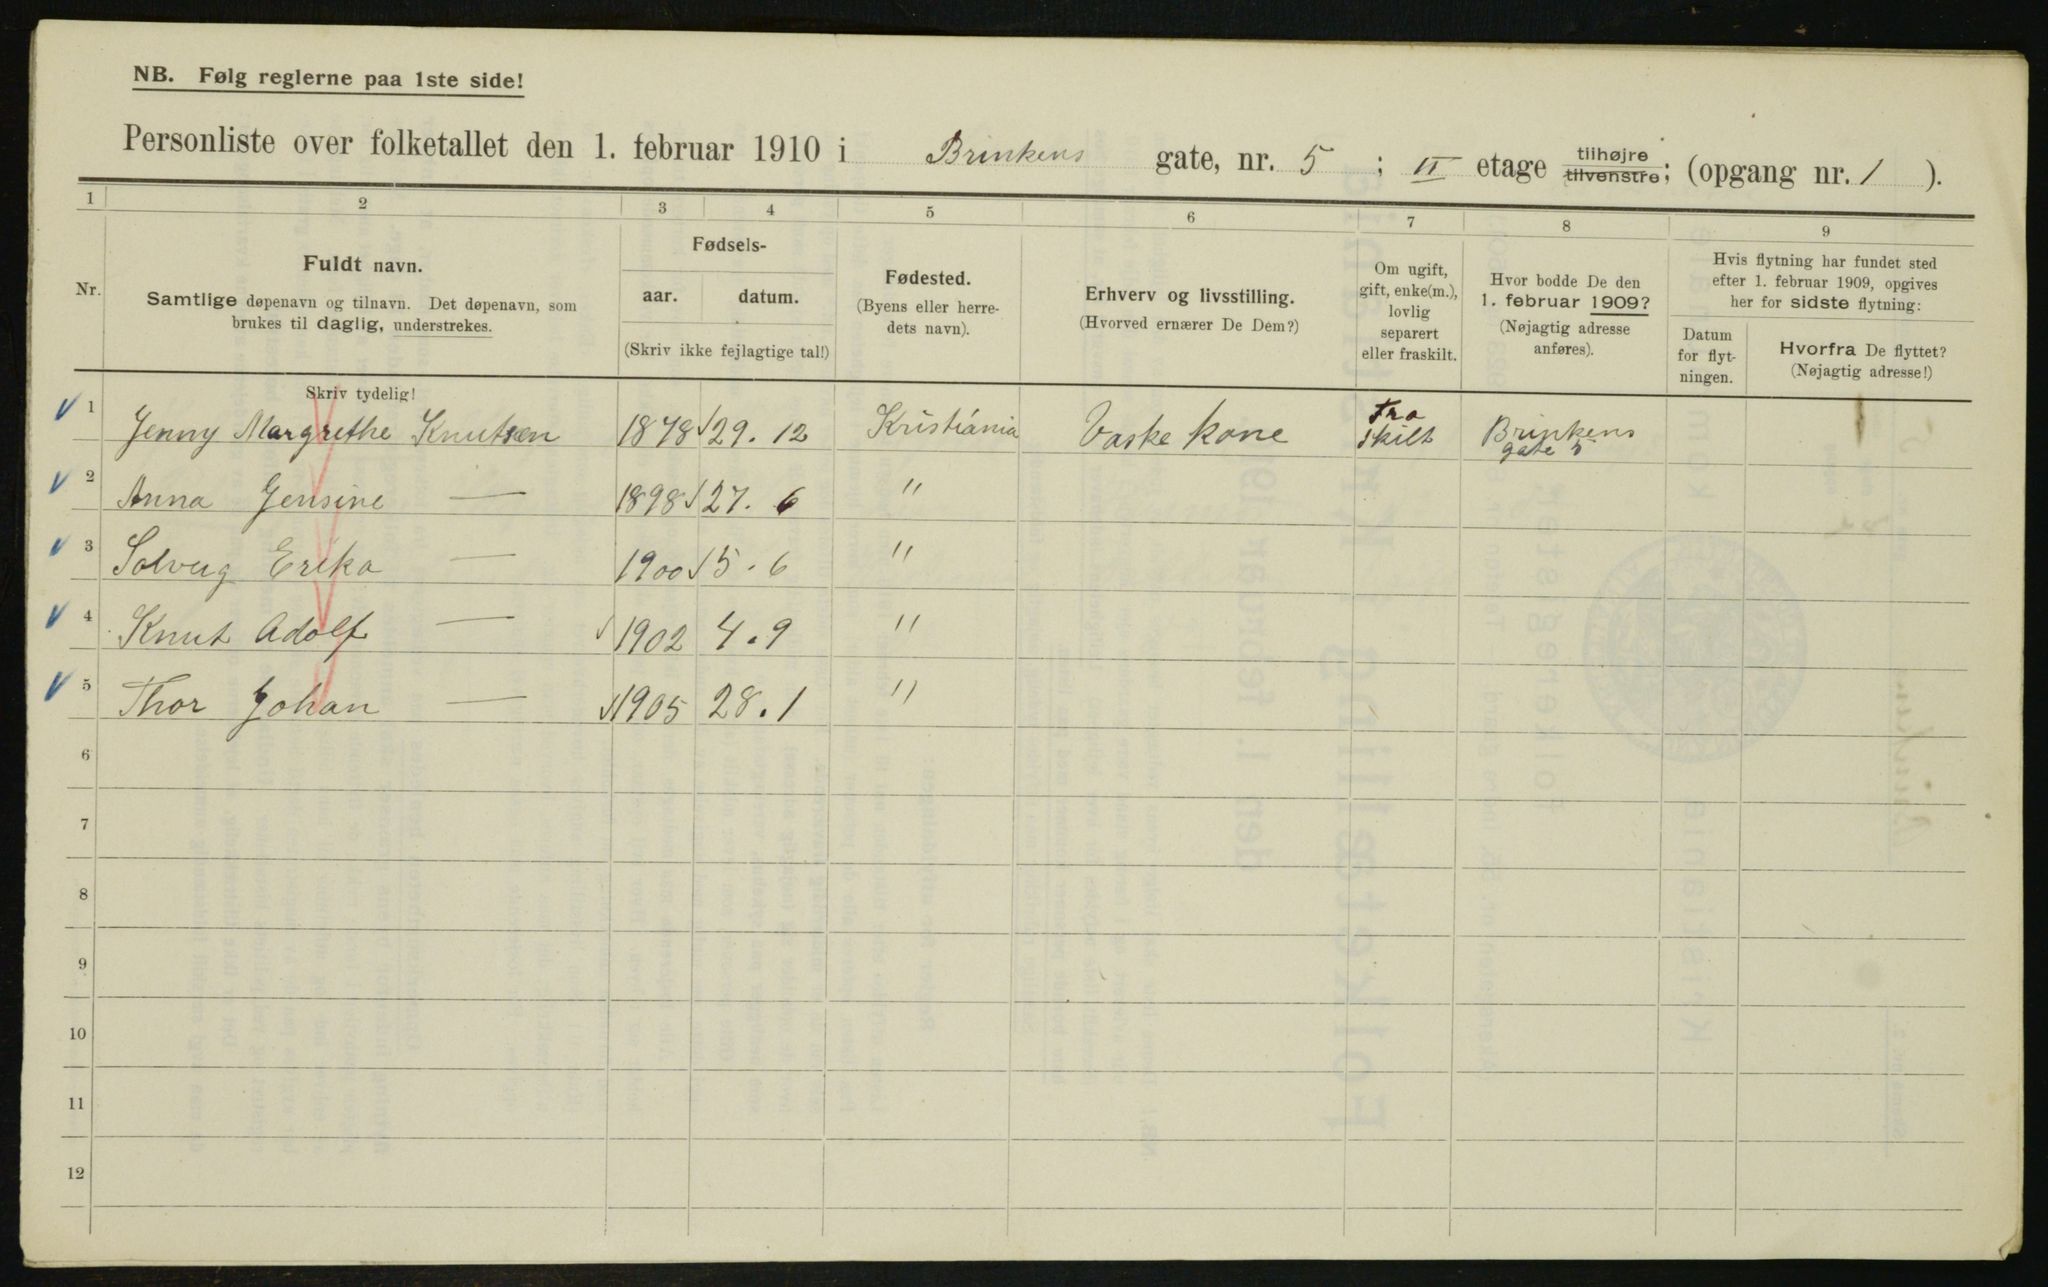 NB. Følg reglerne paa 1ste side!
Personliste over folketallet den 1. februar 1910 i Brinkens gate, nr. 5 ; II etage tilhøjre tilvenstre; (opgang nr. 1 ).
1 2 3 4 5 6 7 8 9
Nr.
Fuldt navn.
Samtlige døpenavn og tilnavn. Det døpenavn, som
brukes til daglig, understrekes.
Fødsels-
aar. datum.
(Skriv ikke fejlagtige tal!)
Fødested.
(Byens eller herre-
dets navn).
Erhverv og livsstilling.
(Hvorved ernærer De Dem?)
Om ugift,
gift, enke(m.),
lovlig
separert
eller fraskilt.
Hvor bodde De den
1. februar 1909?
(Nøjagtig adresse
anføres).
Hvis flytning har fundet sted
efter 1. februar 1909, opgives
her for sidste flytning:
Datum
for flyt-
ningen.
Hvorfra De flyttet?
(Nøjagtig adresse!)
Skriv tydelig!
1 Jenny Margrethe Knutsen 1878 29. 12 Kristiania Vaske kone Fra skilt Brinkens gate 5
2 Anna Jensine — 1898 27. 6 "
3 Solveig Erika — 1900 5. 6 "
4 Knut Adolf — 1902 4. 9 "
5 Thor Johan — 1905 28. 1 "
6
7
8
9
10
11
12